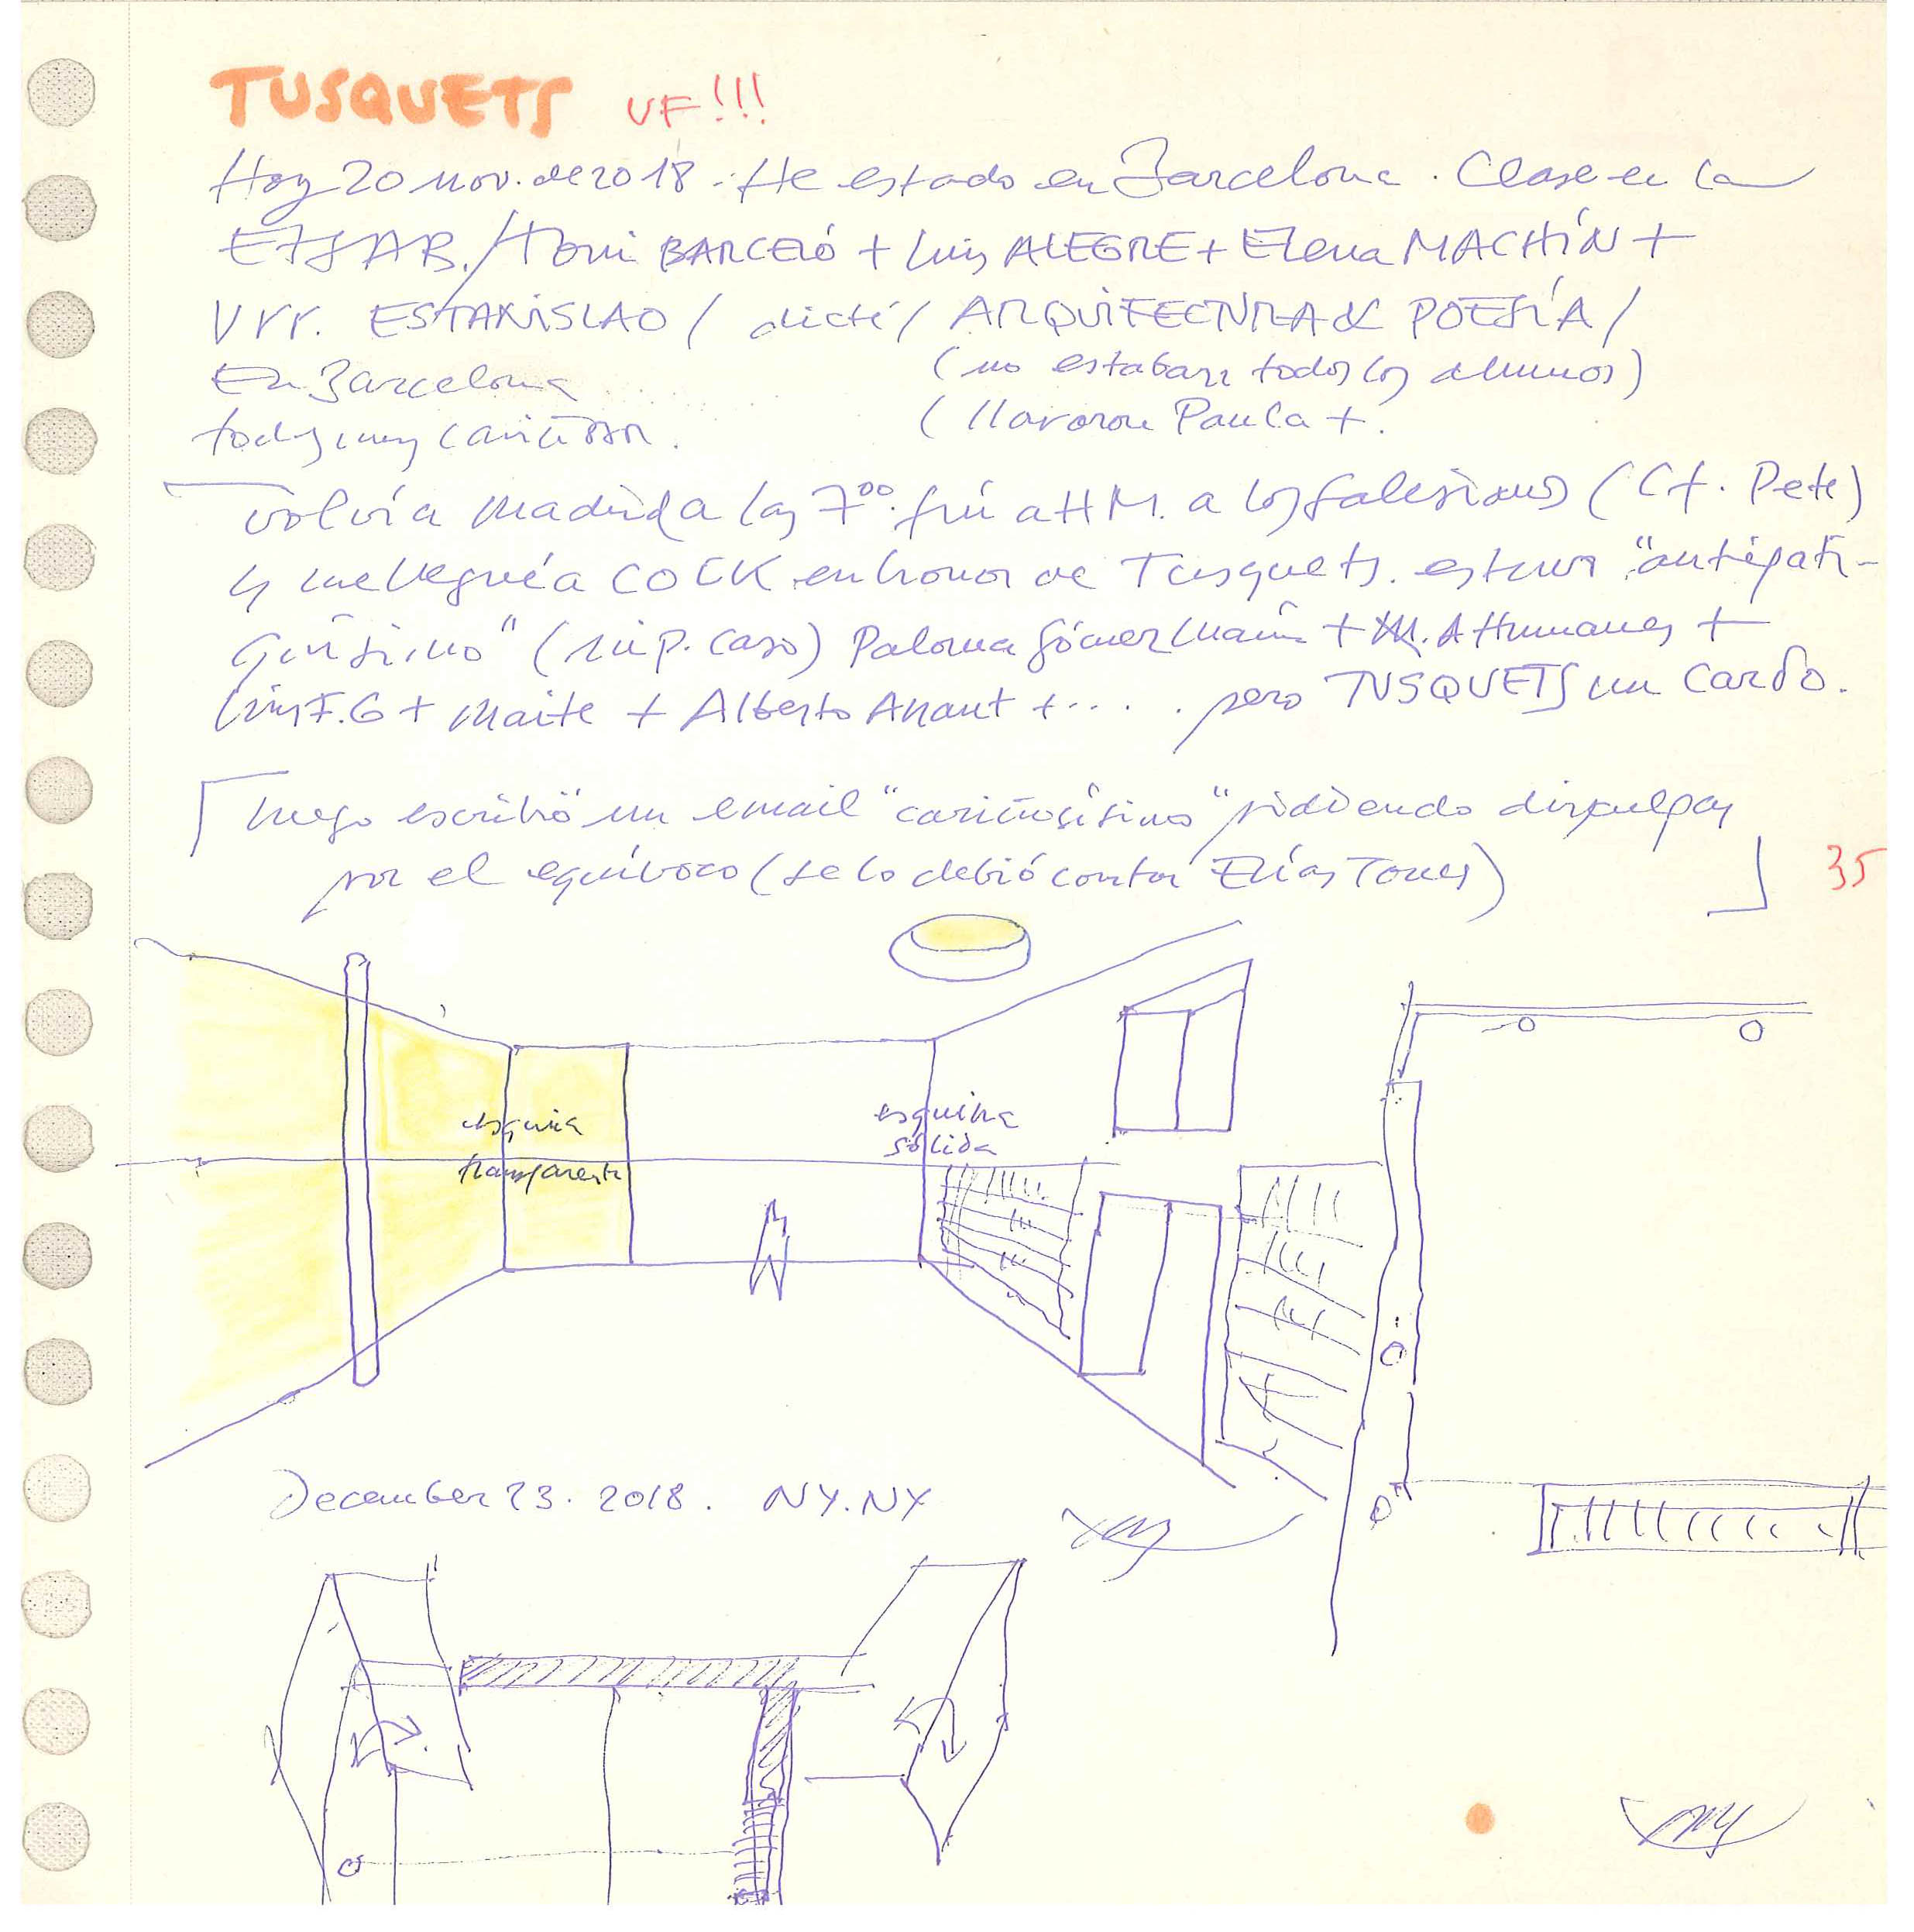 TUSQUETS UF!!!
Hoy 20 nov. de 2018. He estado en Barcelona. Clase en la
ETSAB./Toni BARCELÓ + Luis ALEGRE + Elena MACHÍN +
ESTANISLAO / dicté / ARQUITECTURA & POESÍA /
En Barcelona (no estaban todos los alumnos)
todos muy (lloraron Paula +.
Volví a Madrid a las 7⁰⁰. fui a HM. a los Salesianos (Cf. Pete)
y me llegué a COCK en honor de Tusquets. estuvo "antipati-
quísimo" (ni p. caso) Paloma Gómez Marín + M. A Humanes +
Luis F.G + Maite + Alberto + .... pero TUSQUETS un cardo.
luego escribió un email "cariñosísimo" pidiendo disculpas
por el equívoco (se lo debió contar Elías Torres)
35
esquina
transparente
esquina
sólida
December 23. 2018. NY.NY